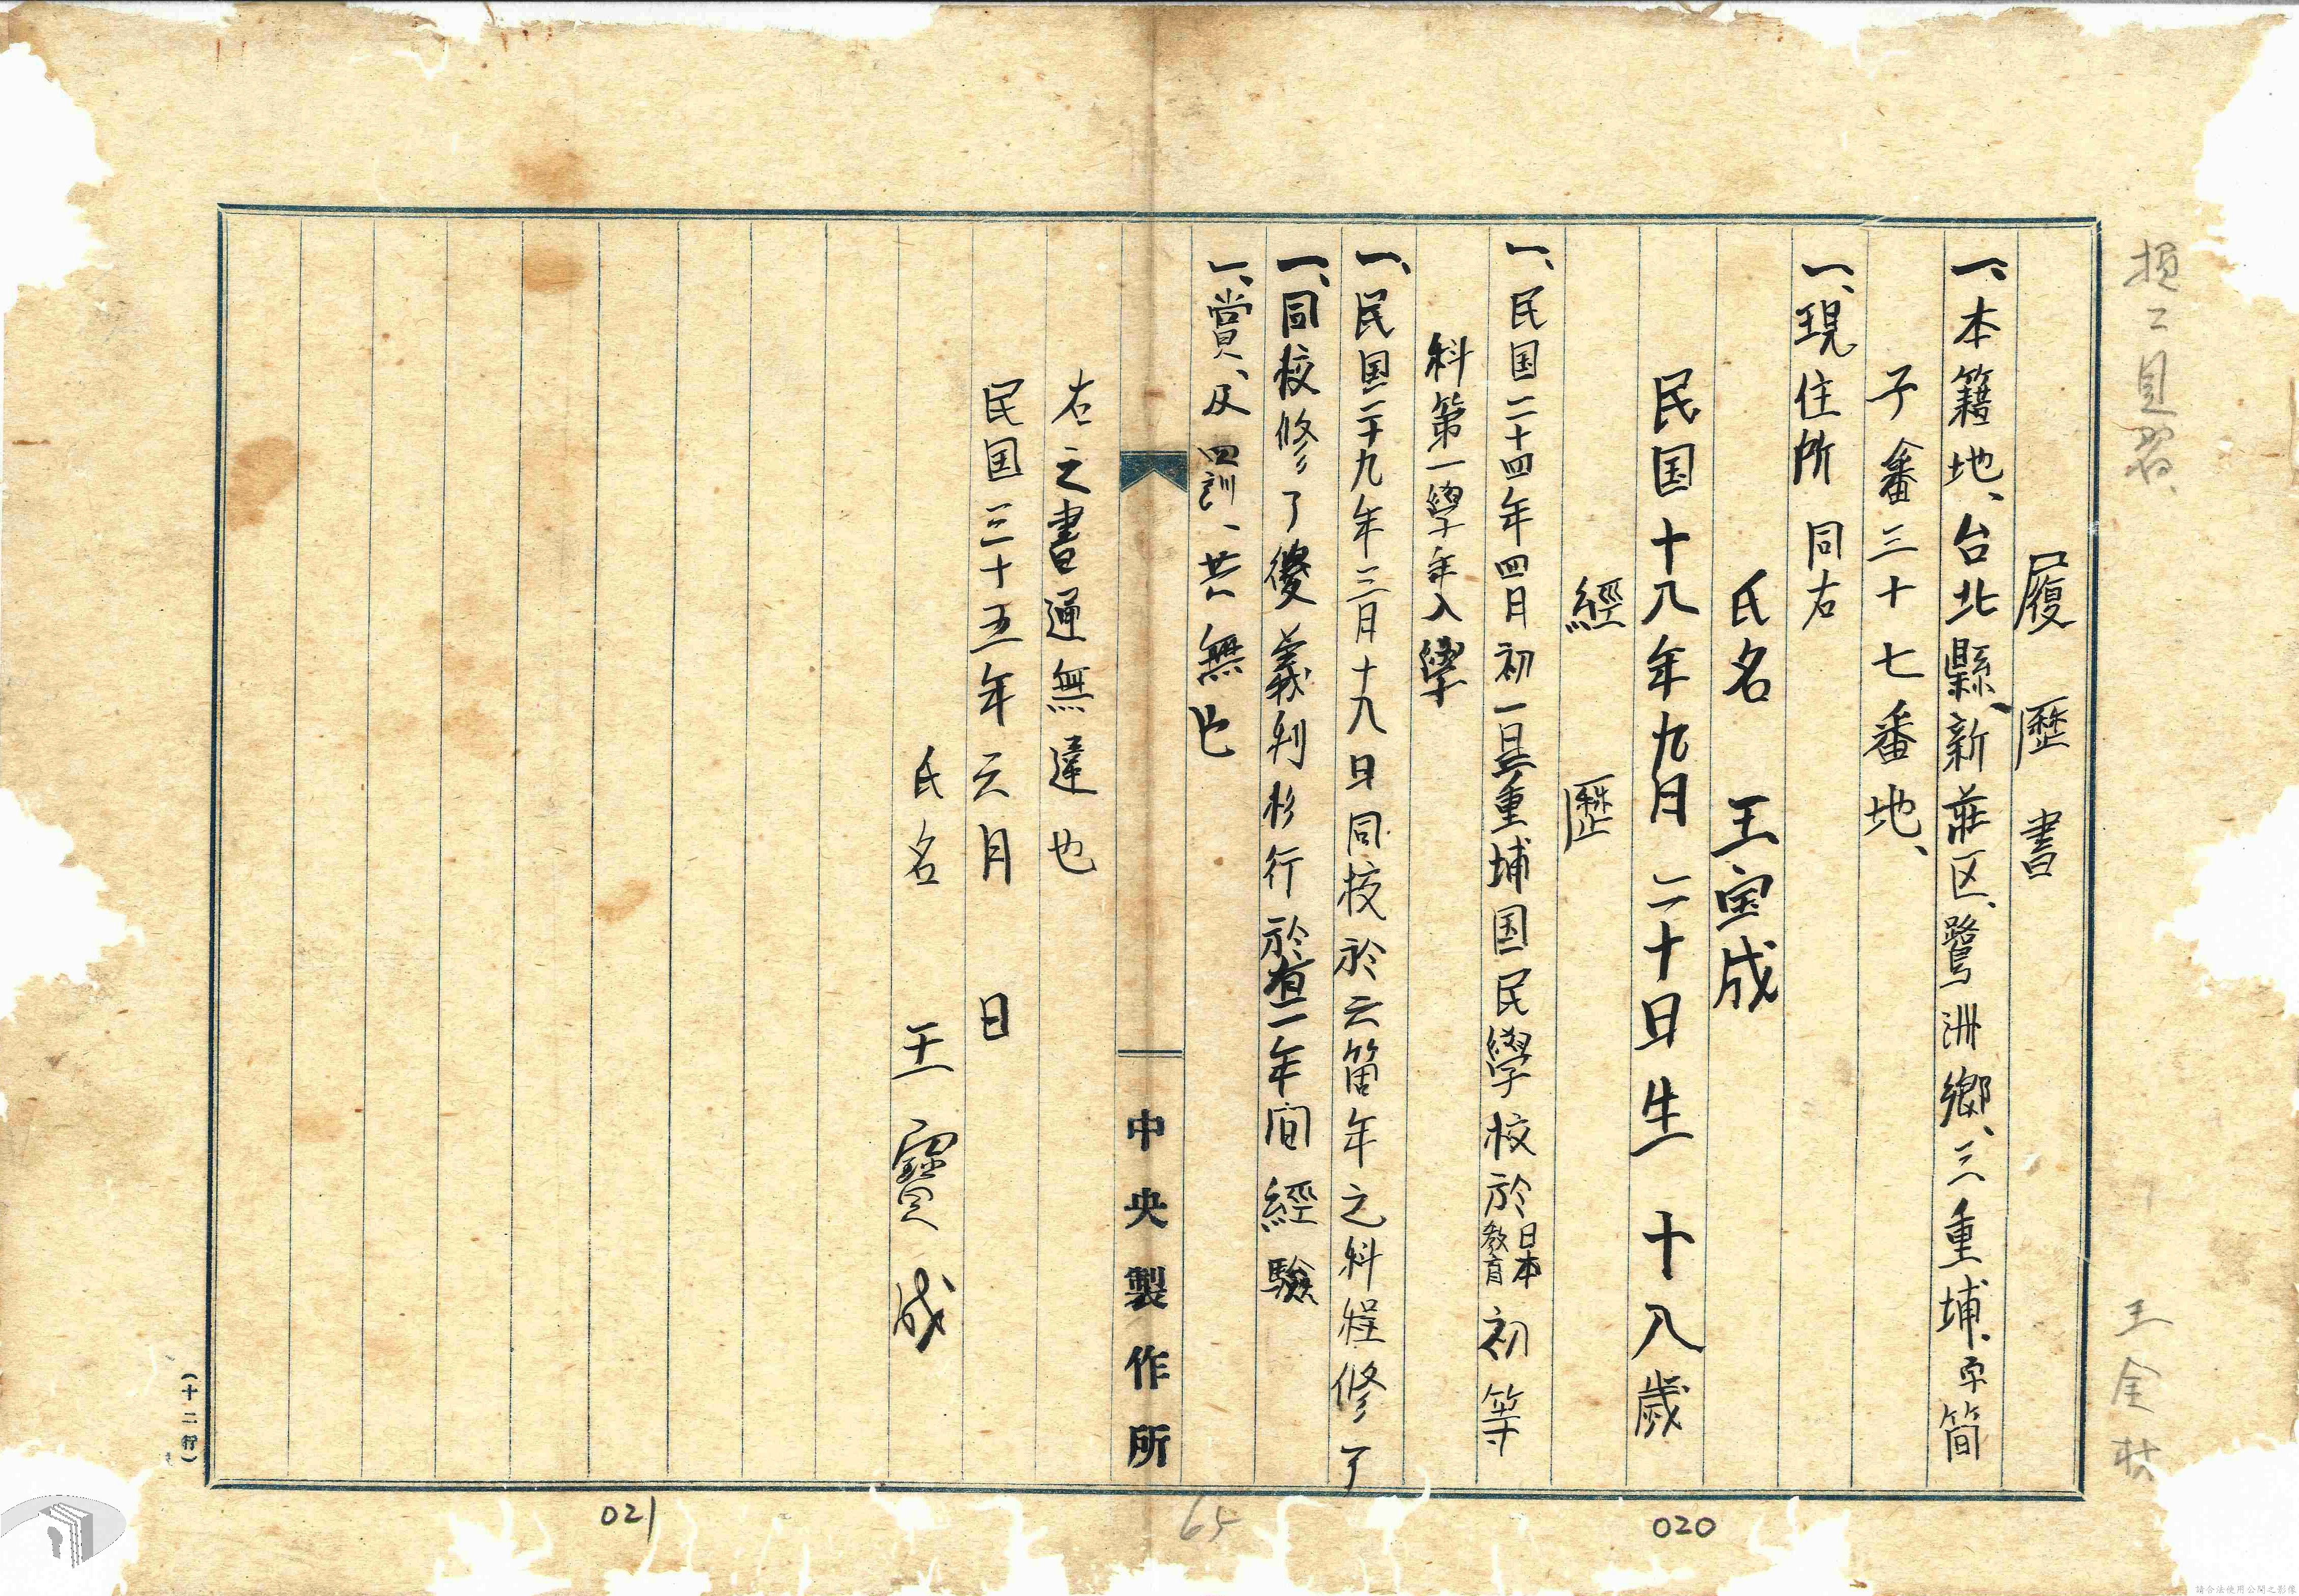 履歷書
一、本籍地、台北縣、新莊区、鷺洲鄉、三重埔、字簡
子畬三十七番地、
一、現住所 同右
氏名 王宝成
民国十八年九月二十日生 十八歲
經歷
一、民国二十四年四月初一旦重埔国民學校於日本教育初等
科第一學年入學
一、民国二十九年三月十九日同校於六箇年之科程修了
一、同校修了後義利杉行於有二年间經驗
一、賞、及四訓、共無也
中央製作所
右之書通無違也
民国三十五年六月 日
氏名 王寶成
(十二行)
王金
021
65
020
請合法使用公開之影像